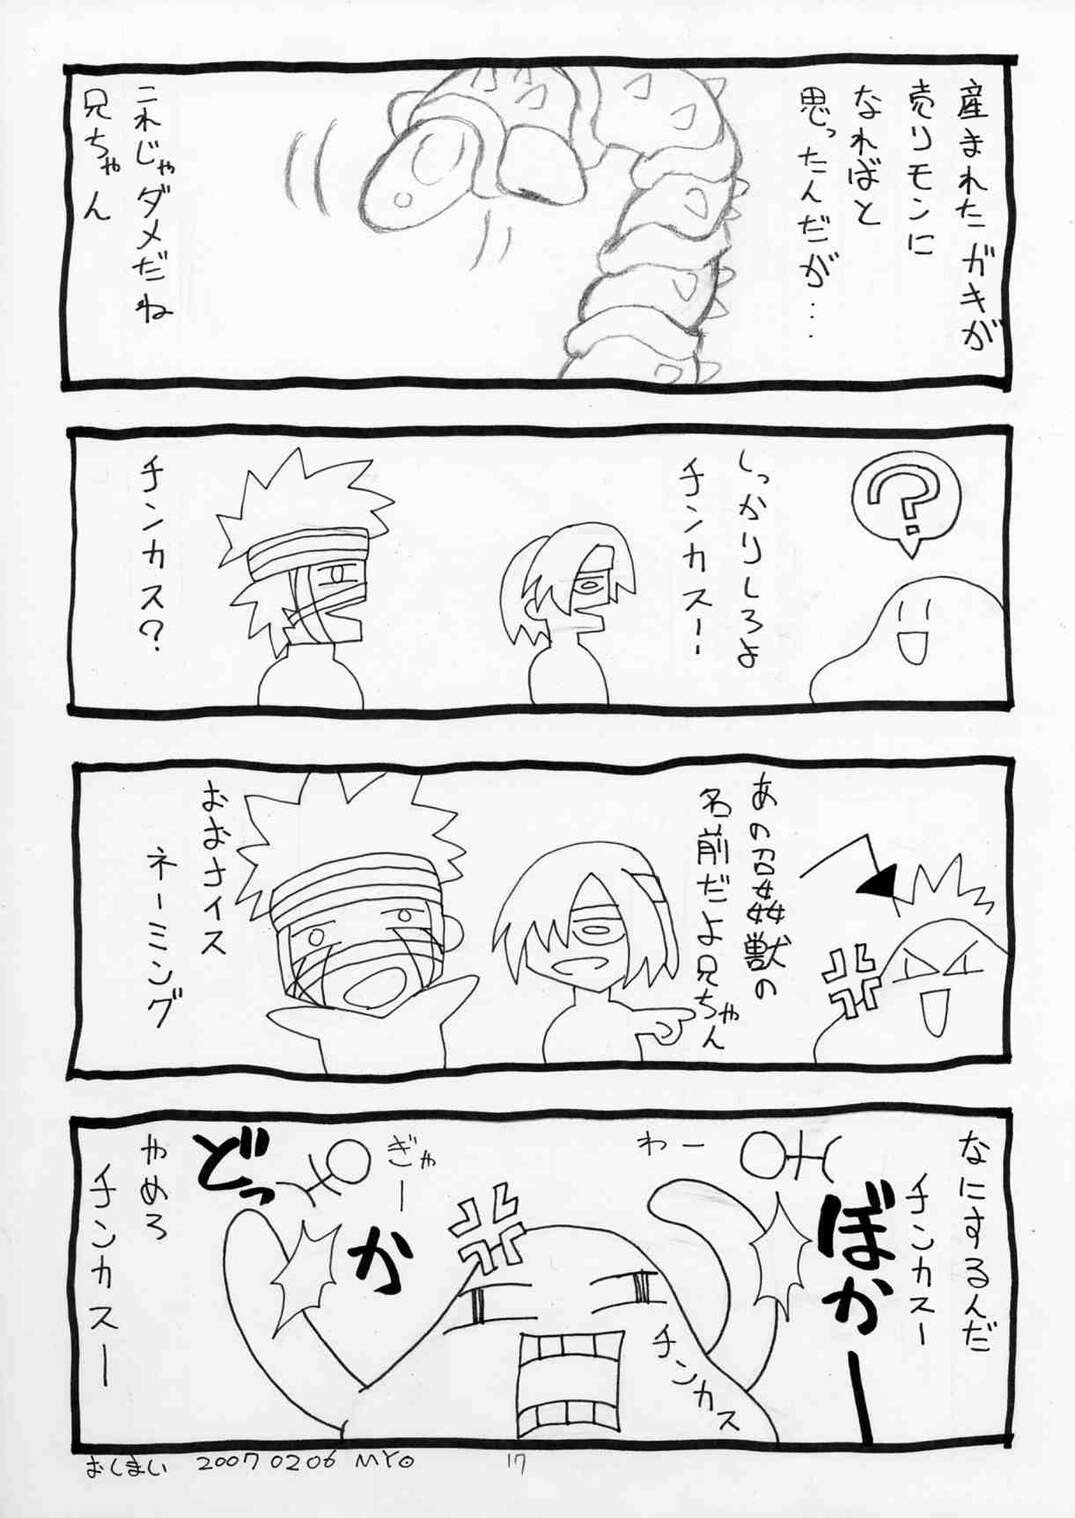 産まれたガキが
売りモンに
なればと
思ったんだが・・・
これじゃダメだね
兄ちゃん
?
しっかりしろよ
チンカスー
チンカス?
あの召姦獣の
名前だよ兄ちゃん
おおナイス
ネーミング
なにするんだ
チンカスー
ぼかー
わー
ぎゃー
どっ
か
チンカス
やめろ
チンカスー
おしまい 20070206 MYO
17